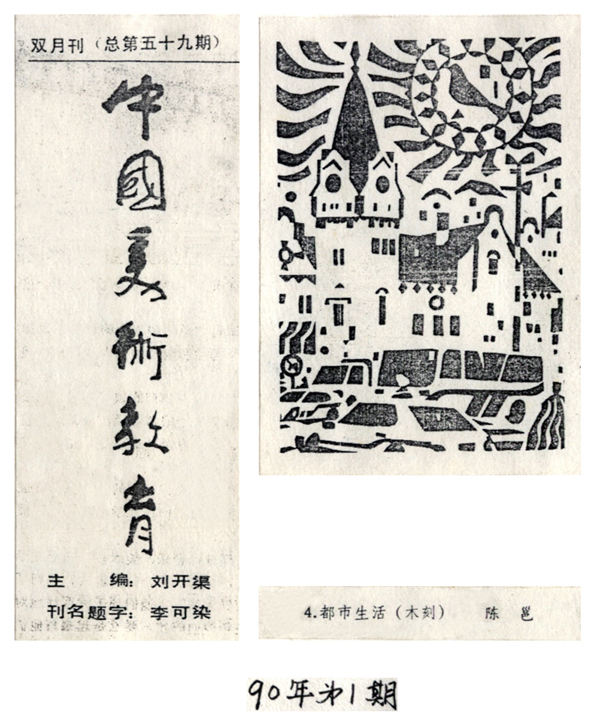 双月刊（总第五十九期）
中國美術教育
主　　编：刘开渠
刊名题字：李可染
4.都市生活（木刻）　　陈　邕
90年第1期